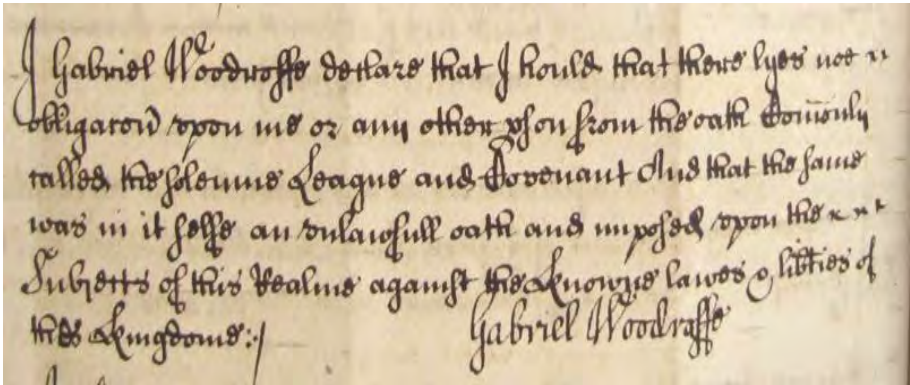 I Gabriel Woodroffe declare that I hould that there lyes noe
obligacon̄ vpon me or any other pson from the oath Com̄only
called the solemne League and Covenant And that the same
was in it selfe an vnlawfull oath and imposed vpon the
Subiects of this Realme against the Knowne lawes & lib̄ties of
this Kingdome:/
Gabriel Woodroffe